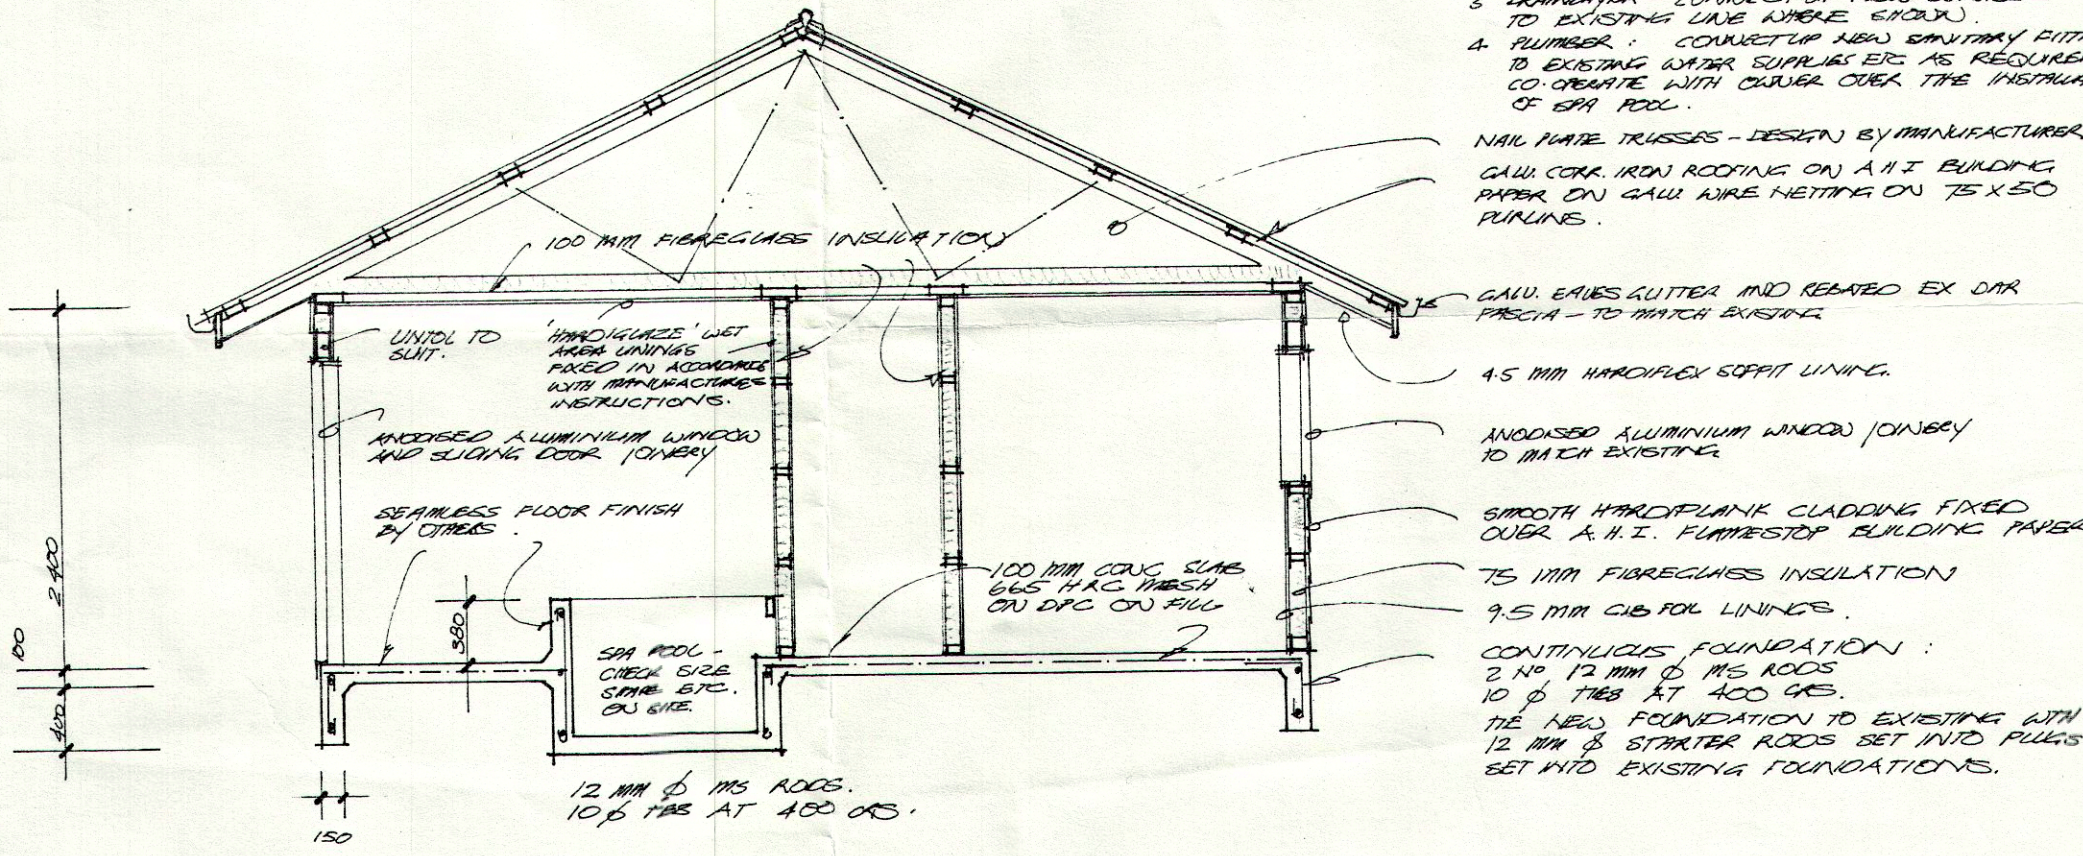 TO EXISTING LINE WHERE SHOWN.
4 PLUMBER : CONNECT UP NEW SANITARY FITT
TO EXISTING WATER SUPPLIES ETC AS REQUIRE
CO-OPERATE WITH OWNER OVER THE INSTALLA
OF SPA POOL.
NAIL PLATE TRUSSES - DESIGN BY MANUFACTURER
GALV. CORR. IRON ROOFING ON A H I BUILDING
PAPER ON GALV. WIRE NETTING ON 75 X 50
PURLINS.
GALV. EAVES GUTTER AND REBATED EX DAR
FASCIA - TO MATCH EXISTING
4.5 MM HARDIFLEX SOFFIT LINING.
ANODISED ALUMINIUM WINDOW JOINERY
TO MATCH EXISTING
SMOOTH HARDIPLANK CLADDING FIXED
OVER A.H.I. FLAMESTOP BUILDING PAPER
75 MM FIBREGLASS INSULATION
9.5 MM GIB FOIL LININGS.
CONTINUOUS FOUNDATION :
2 No 12 MM φ MS RODS
10 φ TIES AT 400 CRS.
TIE NEW FOUNDATION TO EXISTING WITH
12 MM φ STARTER RODS SET INTO PLUGS
SET INTO EXISTING FOUNDATIONS.
100 MM FIBREGLASS INSULATION
LINTOL TO
SUIT.
'HARDIGLAZE' WET
AREA LININGS
FIXED IN ACCORDANCE
WITH MANUFACTURES
INSTRUCTIONS.
ANODISED ALUMINIUM WINDOW
AND SLIDING DOOR JOINERY
SEAMLESS FLOOR FINISH
BY OTHERS.
100 MM CONC SLAB
665 HRC MESH
ON DPC ON FILL
SPA POOL -
CHECK SIZE
ETC.
ON SITE.
380
2 400
100
400
150
12 MM φ MS RODS.
10 φ TIES AT 400 CRS.